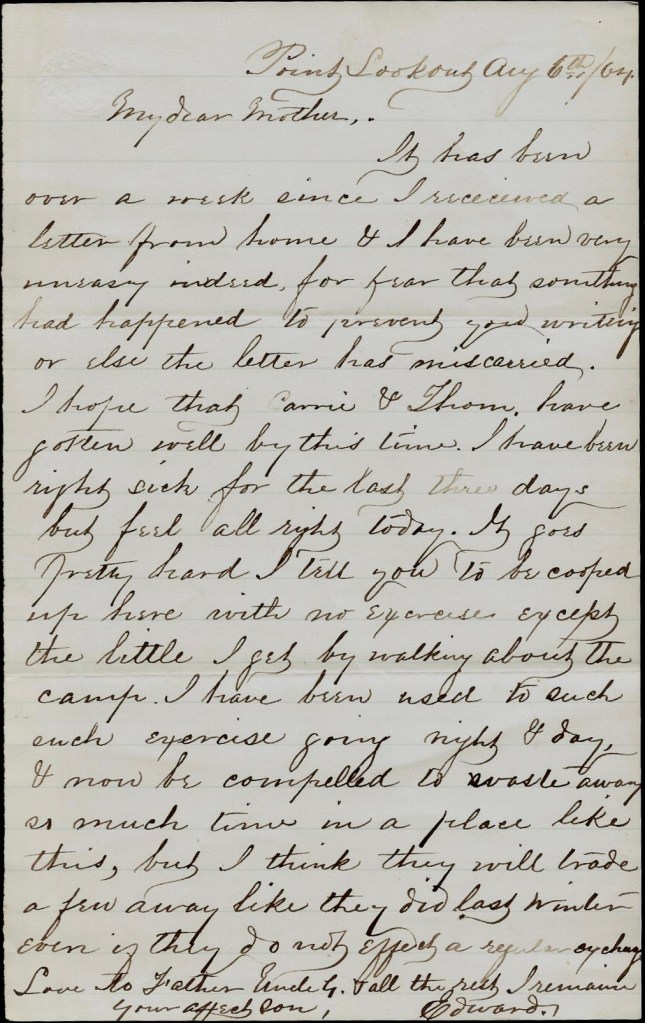 Point Lookout Aug 6th /64.
My dear Mother,.
It has been
over a week since I receeived a
letter from home & I have been very
uneasy indeed, for fear that somthing
had happened to prevent your writing
or else the letter has miscarried.
I hope that Carrie & Thom. have
gotten well by this time. I have been
right sick for the last three days
but feel all right today. It goes
pretty hard I tell you to be cooped
up here with no exercise except
the little I get by walking about the
camp. I have been used to such
such exercise going night & day,
& now be compelled to waste away
so much time in a place like
this, but I think they will trade
a few away like they did last Winter
even if they do not effect a regular exchange
Love to Father Uncle G. & all the rest I remain
your affect son, Edward.